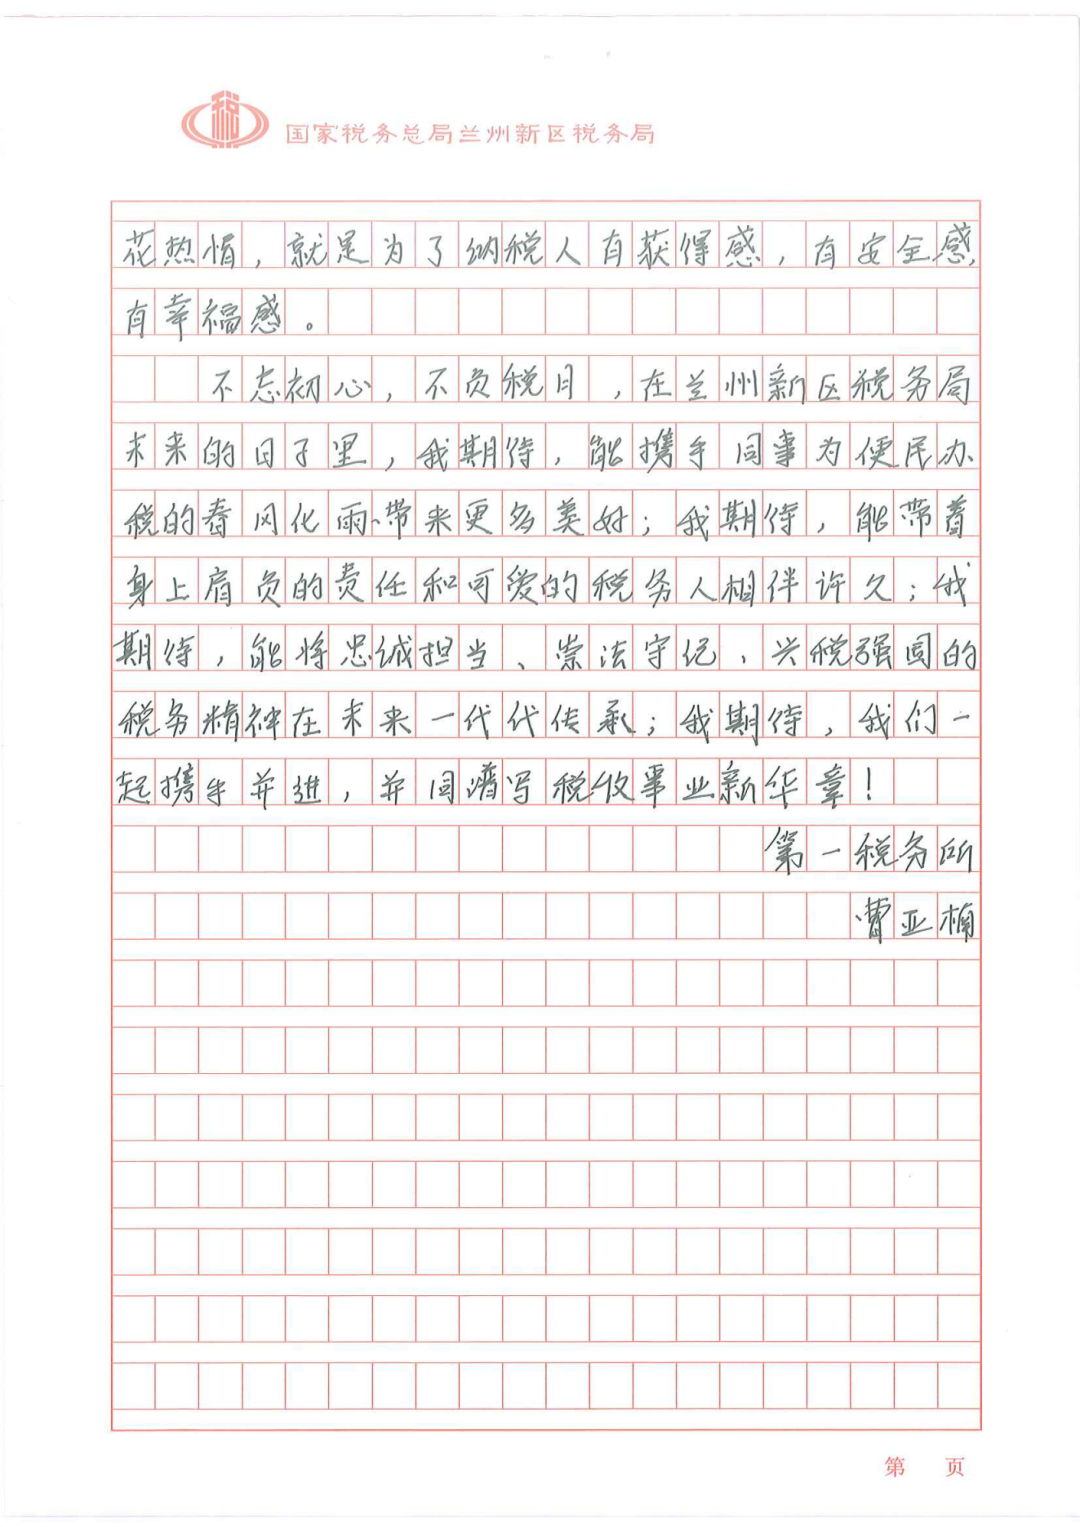 税
国家税务总局兰州新区税务局
花热情，就是为了纳税人有获得感，有安全感，
有幸福感。
不忘初心，不负税月，在兰州新区税务局
未来的日子里，我期待，能携手同事为便民办
税的春风化雨、带来更多美好；我期待，能带着
身上肩负的责任和可爱的税务人相伴许久；我
期待，能将忠诚担当、崇法守纪、兴税强国的
税务精神在未来一代代传承；我期待，我们一
起携手并进，并同谱写税收事业新华章！
第一税务所
曹亚楠
第 页